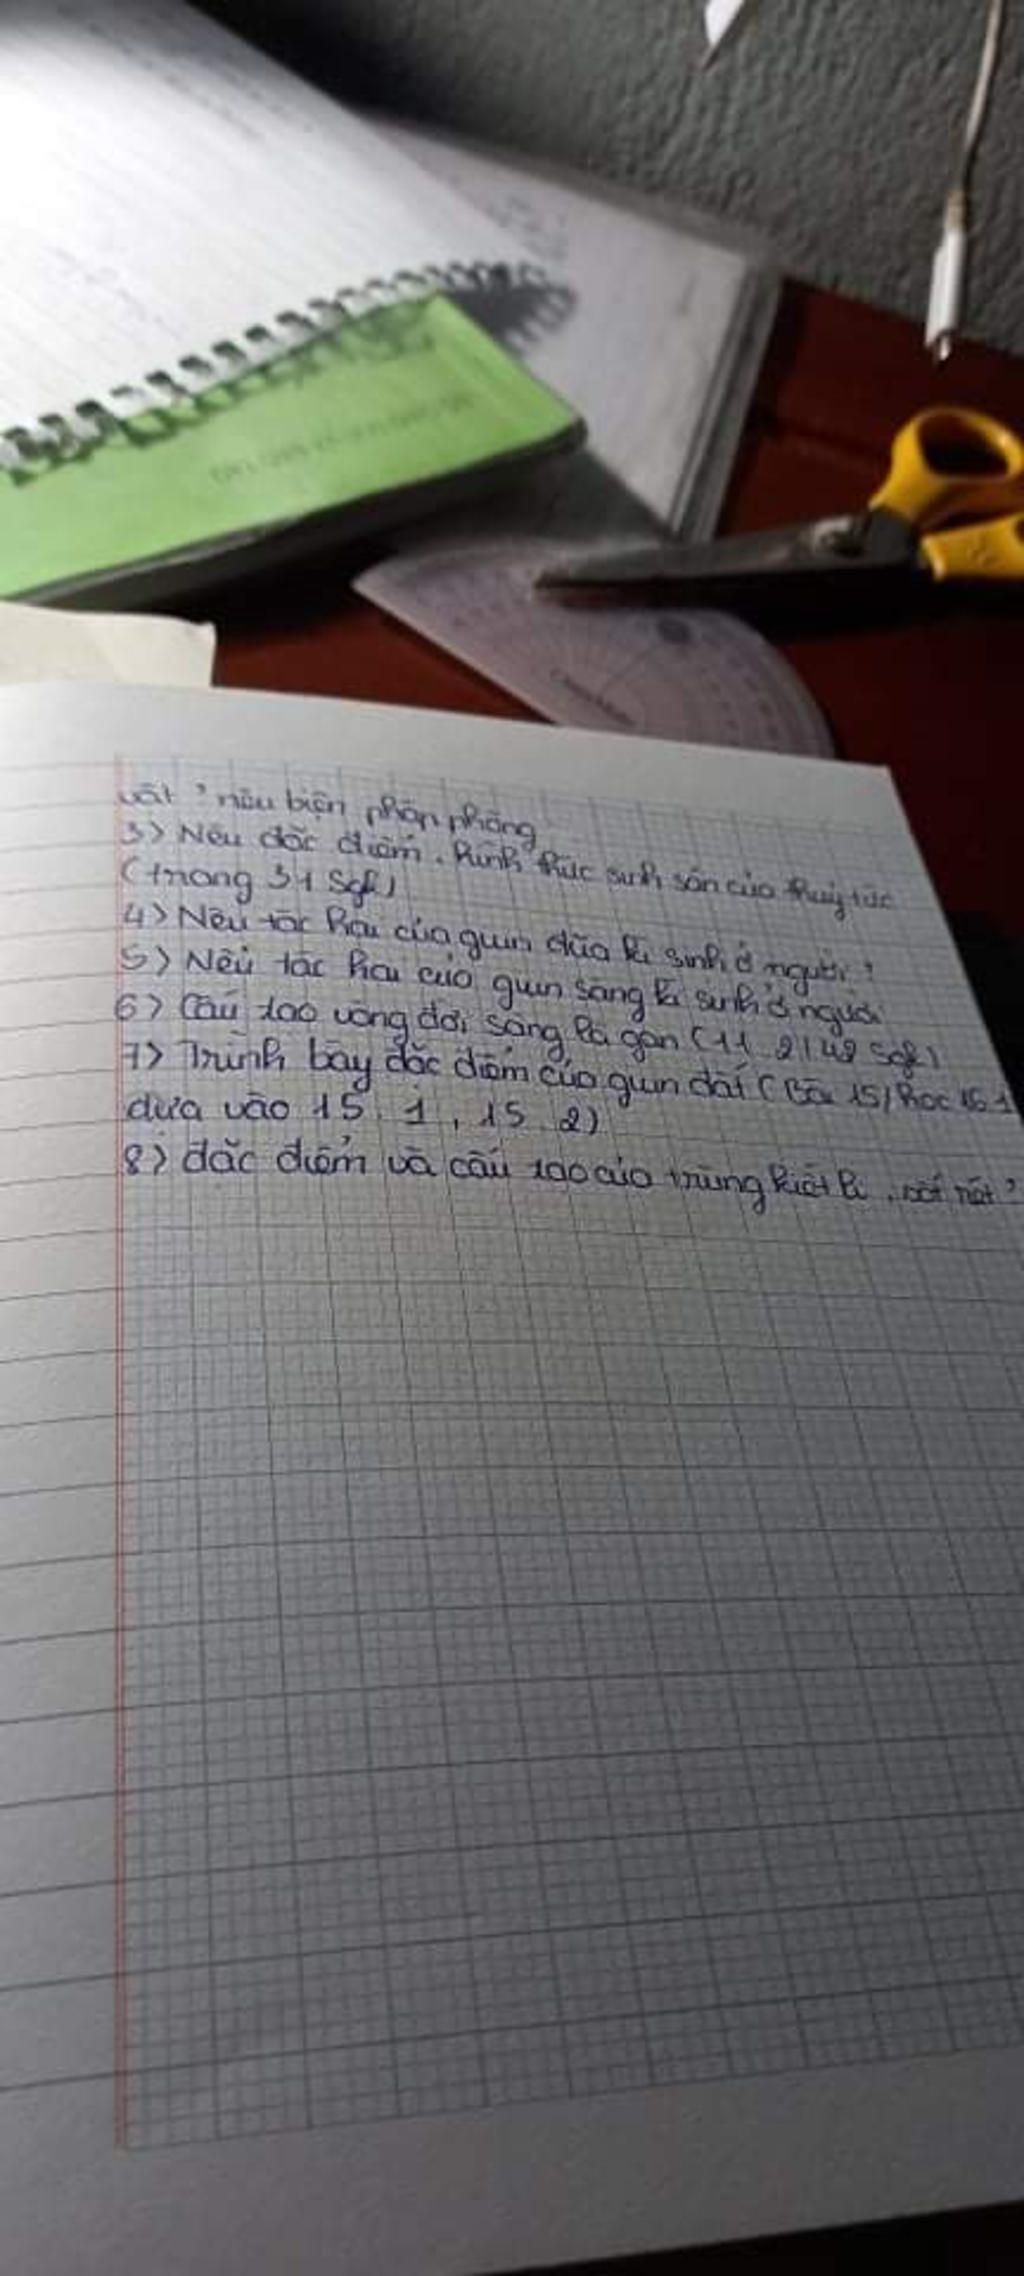 vật ? nêu biện pháp phòng
3> Nêu đặc điểm, hình thức sinh sản của thuỷ tức
(trang 31 Sgk)
4> Nêu tác hại của giun đũa kí sinh ở người ?
5> Nêu tác hại của giun sáng kí sinh ở người
6> Cấu tạo vòng đời sáng lá gan (11.2/42 Sgk)
7> Trình bày đặc điểm của giun đất (Bài 15/
dựa vào 15.1, 15.2)
8> đặc điểm và cấu tạo của trùng kiết lị, sốt rét ?